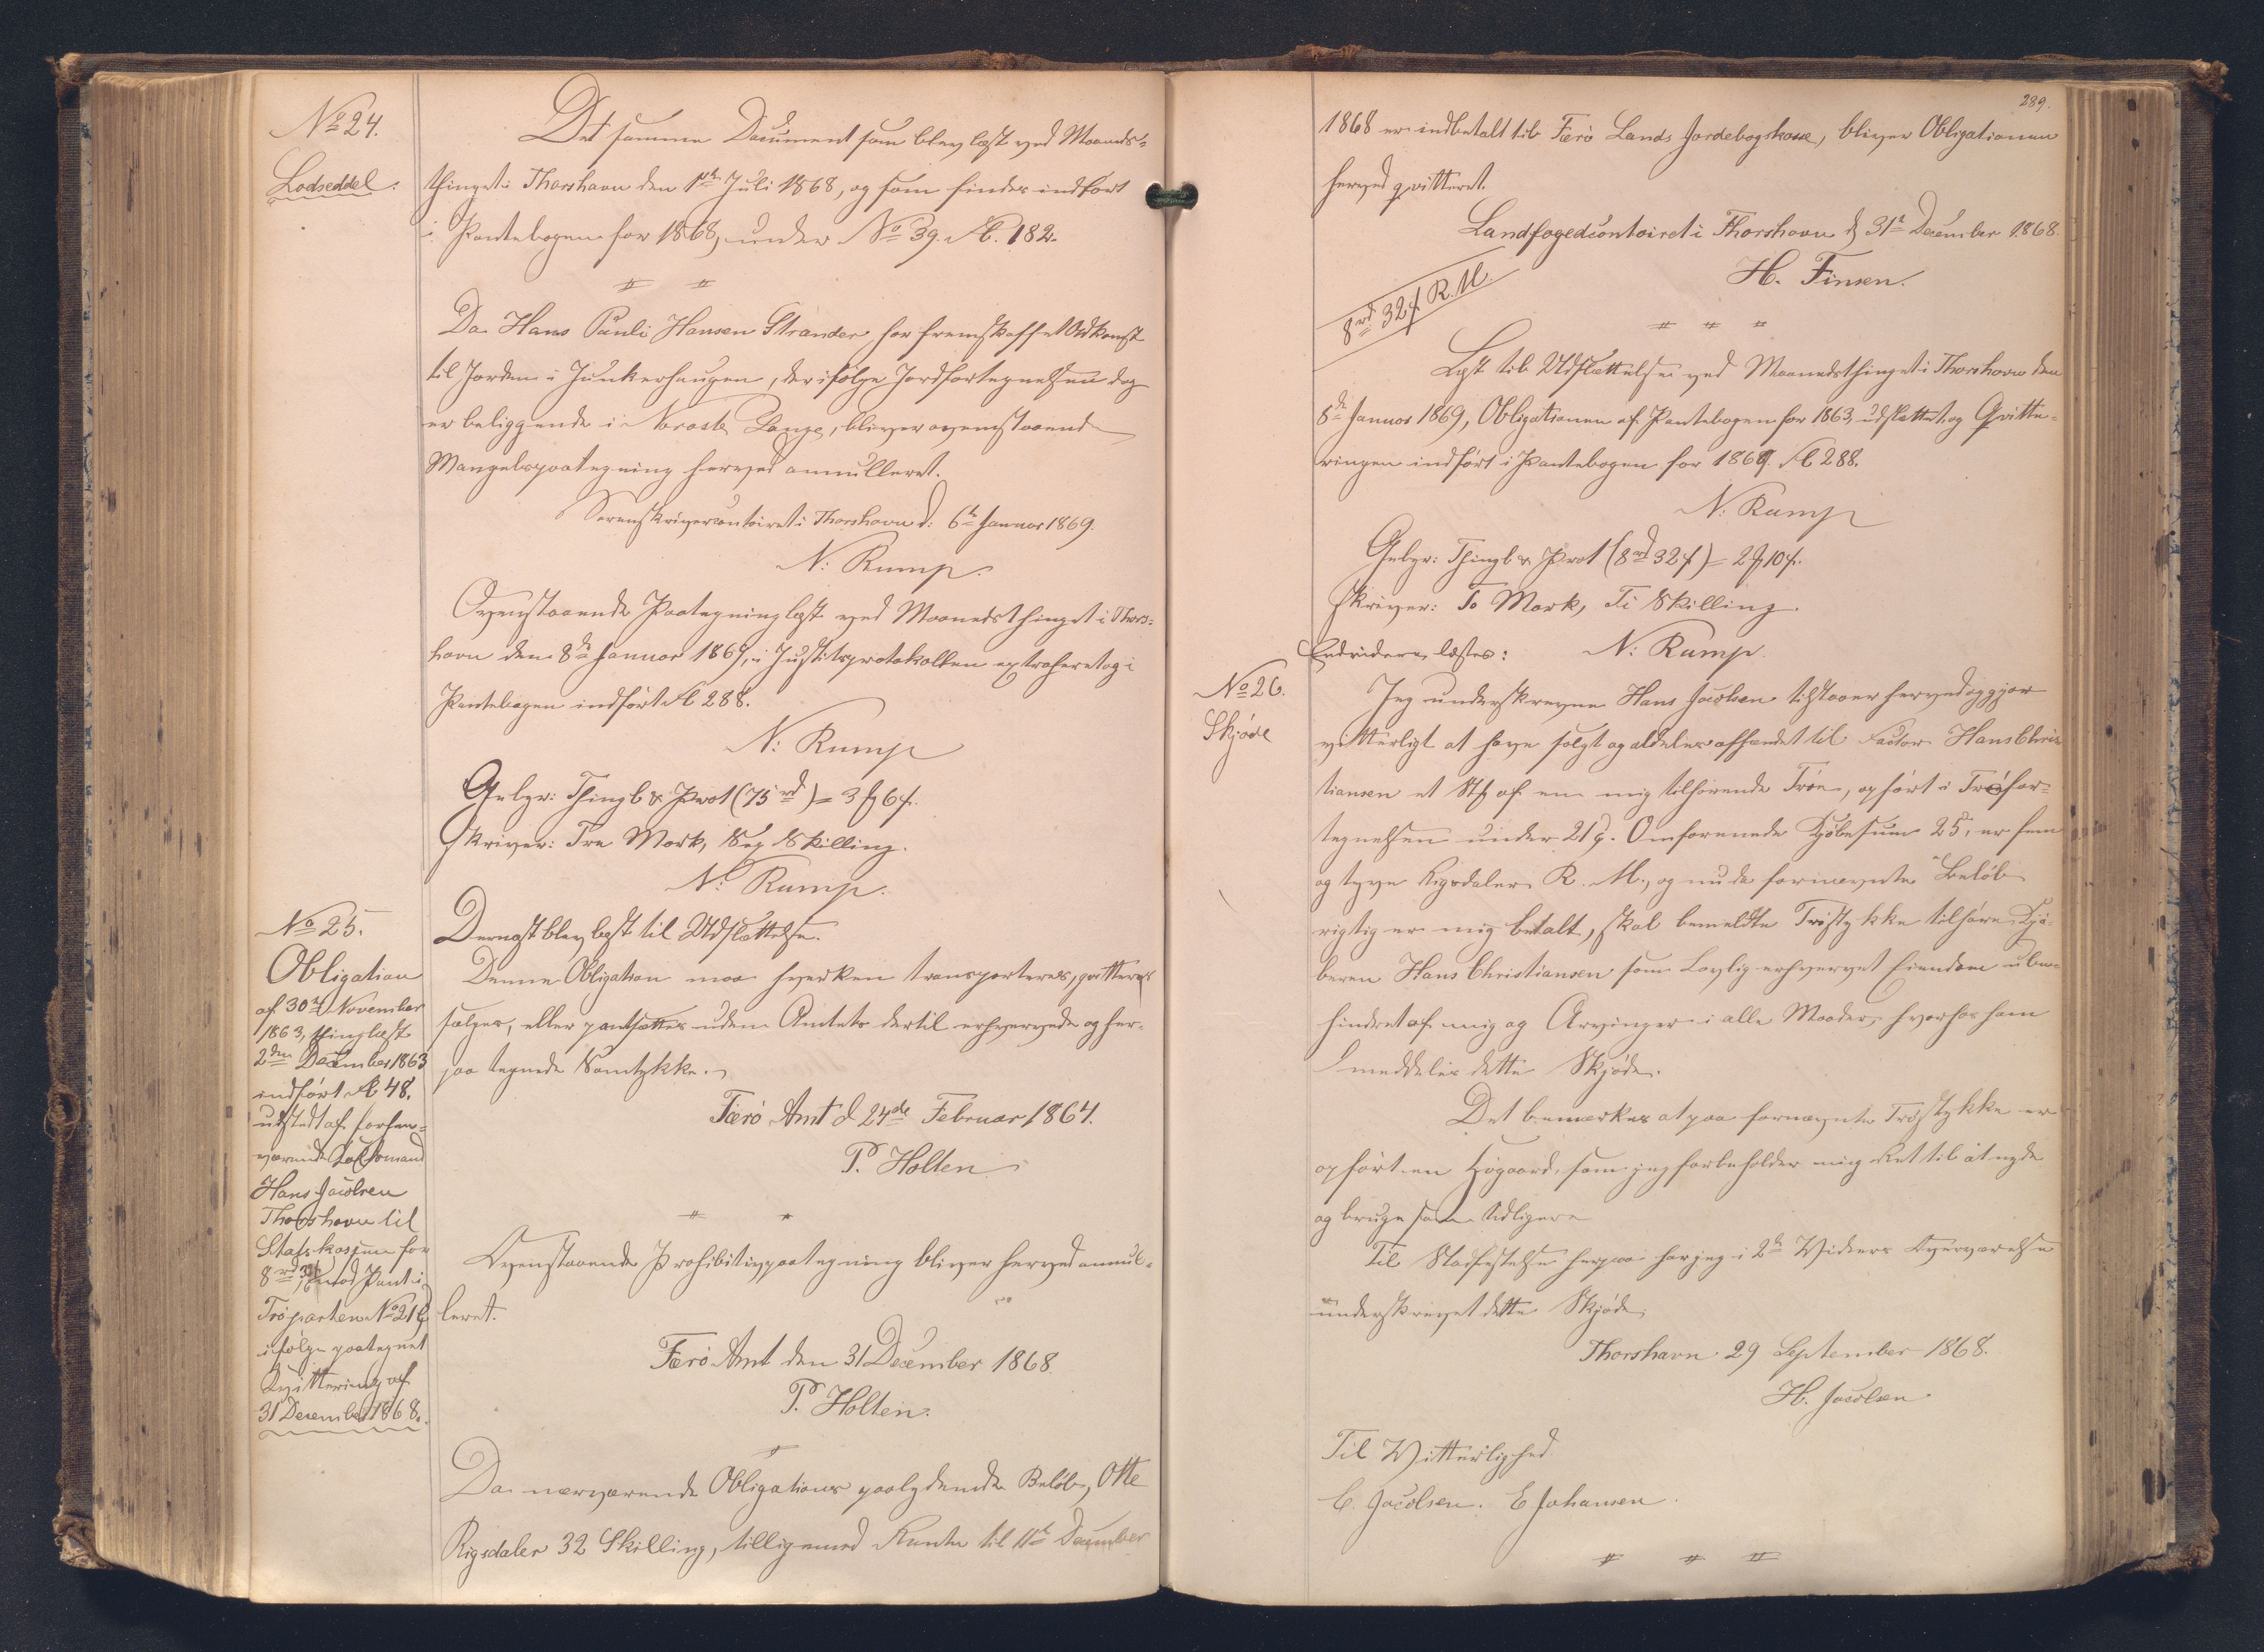 No 24.
Lodseddel.
Det samme Document som blev læst ved Maaneds-
thinget i Thorshavn den 1ste Juli 1868, og som findes indført
i Pantebogen for 1868, under No 39. Fol. 182.
Da Hans Pauli Hansen Strander har fremskaffet Adkomst
til Jorden i Junkerhaugen, der ifølge Jordfortegnelsen dog
er beliggende i Norastb Lange, bliver ovenstaaende
Mangelspaategning herved annulleret.
Sorenskrivercontoiret i Thorshavn d: 6te Januar 1869.
N: Rump.
Ovenstaaende Paategning læst ved Maanedsthinget i Thors-
havn den 8de Januar 1869, i Justitsprotokollen extraheret og i
Pantebogen indført Fol 288.
N: Rump
Gebyr: Thingl & Prot (75 rd) = 3 ℔ 6 ß.
skriver: Tre Mark, Sex Skilling.
N: Rump.
No 25.
Obligation
af 30te November
1863, thinglæst
2den December 1863
indført Fol 48.
udstedt af forhen-
værende
Hans Jacobsen
Thorshavn til
Statskassen for
8 rd 32 ß mod Pant i
Trøparten No 21 g
ifølge paategnet
Qvittering af
31 December 1868.
Dernæst blev læst til Udslettelse.
Denne Obligation maa hverken transporteres, qvitteres
sælges, eller pantsættes uden Amtets dertil erhvervede og her-
paa tegnede Samtykke.
Færø Amt d 24de Februar 1864.
P. Holten
Ovenstaaende Prohibitivpaategning bliver herved annul-
leret.
Færø Amt den 31 December 1868.
P. Holten.
Da nærværende Obligations paalydende Beløb, Otte
Rigsdaler 32 Skilling, tilligemed Renter til 11te December
289.
1868 er indbetalt til Færø Lands Jordebogskasse, bliver Obligationen
herved qvitteret.
Landfogedcontoiret i Thorshavn d 31te December 1868.
H. Finsen.
8 rd 32 ß R. M.
Læst til Udslættelse ved Maanedsthinget i Thorshavn den
8de Januar 1869, Obligationen af Pantebogen for 1863 udslettet og Qvitte-
ringen indført i Pantebogen for 1869. Fol 288.
N: Rump
Gebyr: Thingl & Prot (8 rd 32 ß) = 2 ℔ 10 ß.
skriver: To Mark, Ti Skilling.
N: Rump.
Endvidere læstes:
No 26.
Skjøde
Jeg underskrevne Hans Jacobsen tilstaaer herved og gjør
vitterligt at have solgt og aldeles afhændet til Factor Hans Chris
tiansen et Stk af en mig tilhørende Trøe, opført i Trøfor-
tegnelsen under 21 g. Omforenede Kjøbesum 25, er fem
og tyve Rigsdaler R. M., og nu da fornævnte Beløb
rigtig er mig betalt, skal bemeldte Trøstykke tilhøre Kjø-
beren Hans Christiansen som Lovlig erhvervet Eiendom ube-
hindret af mig og Arvinger i alle Maader, hvorfor ham
meddeles dette Skjøde.
Det bemærkes at paa fornævnte Trøstykke er
opført en Høgaard, som jeg forbeholder mig Ret til at nyde
og bruge som tidligere
Til Stadfestelse herpaa har jeg i 2de Vidners Overværelse
underskrevet dette Skjøde.
Thorshavn 29 September 1868.
H. Jacobsen
Til Vitterlighed
C. Jacobsen. E Johansen.